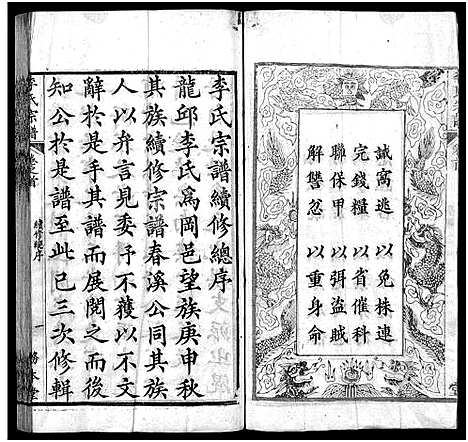 誡窩逃　以免株連
完錢糧　以省催科
聯保甲　以弭盜賊
解讐忿　以重身命
李氏宗譜續修總序
龍邱李氏爲岡邑望族庚申秋
其族續修宗譜春溪公同其族
人以弁言見委予不獲以不文
辭於是手其譜而展閱之而後
知公於是譜至此已三次修輯
李氏宗譜
卷之首
續修總序
一